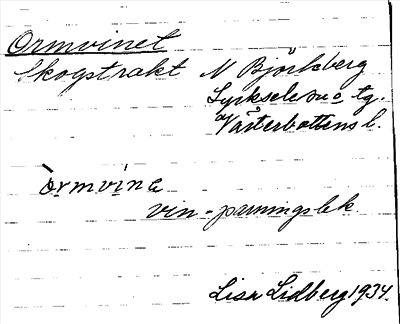 Ormvinet
Skogstrakt N Björkberg
Lycksele sn o tg.
Västerbottens l.
òrmvine
vin = parningslek.
Lisa Lidberg 1934.